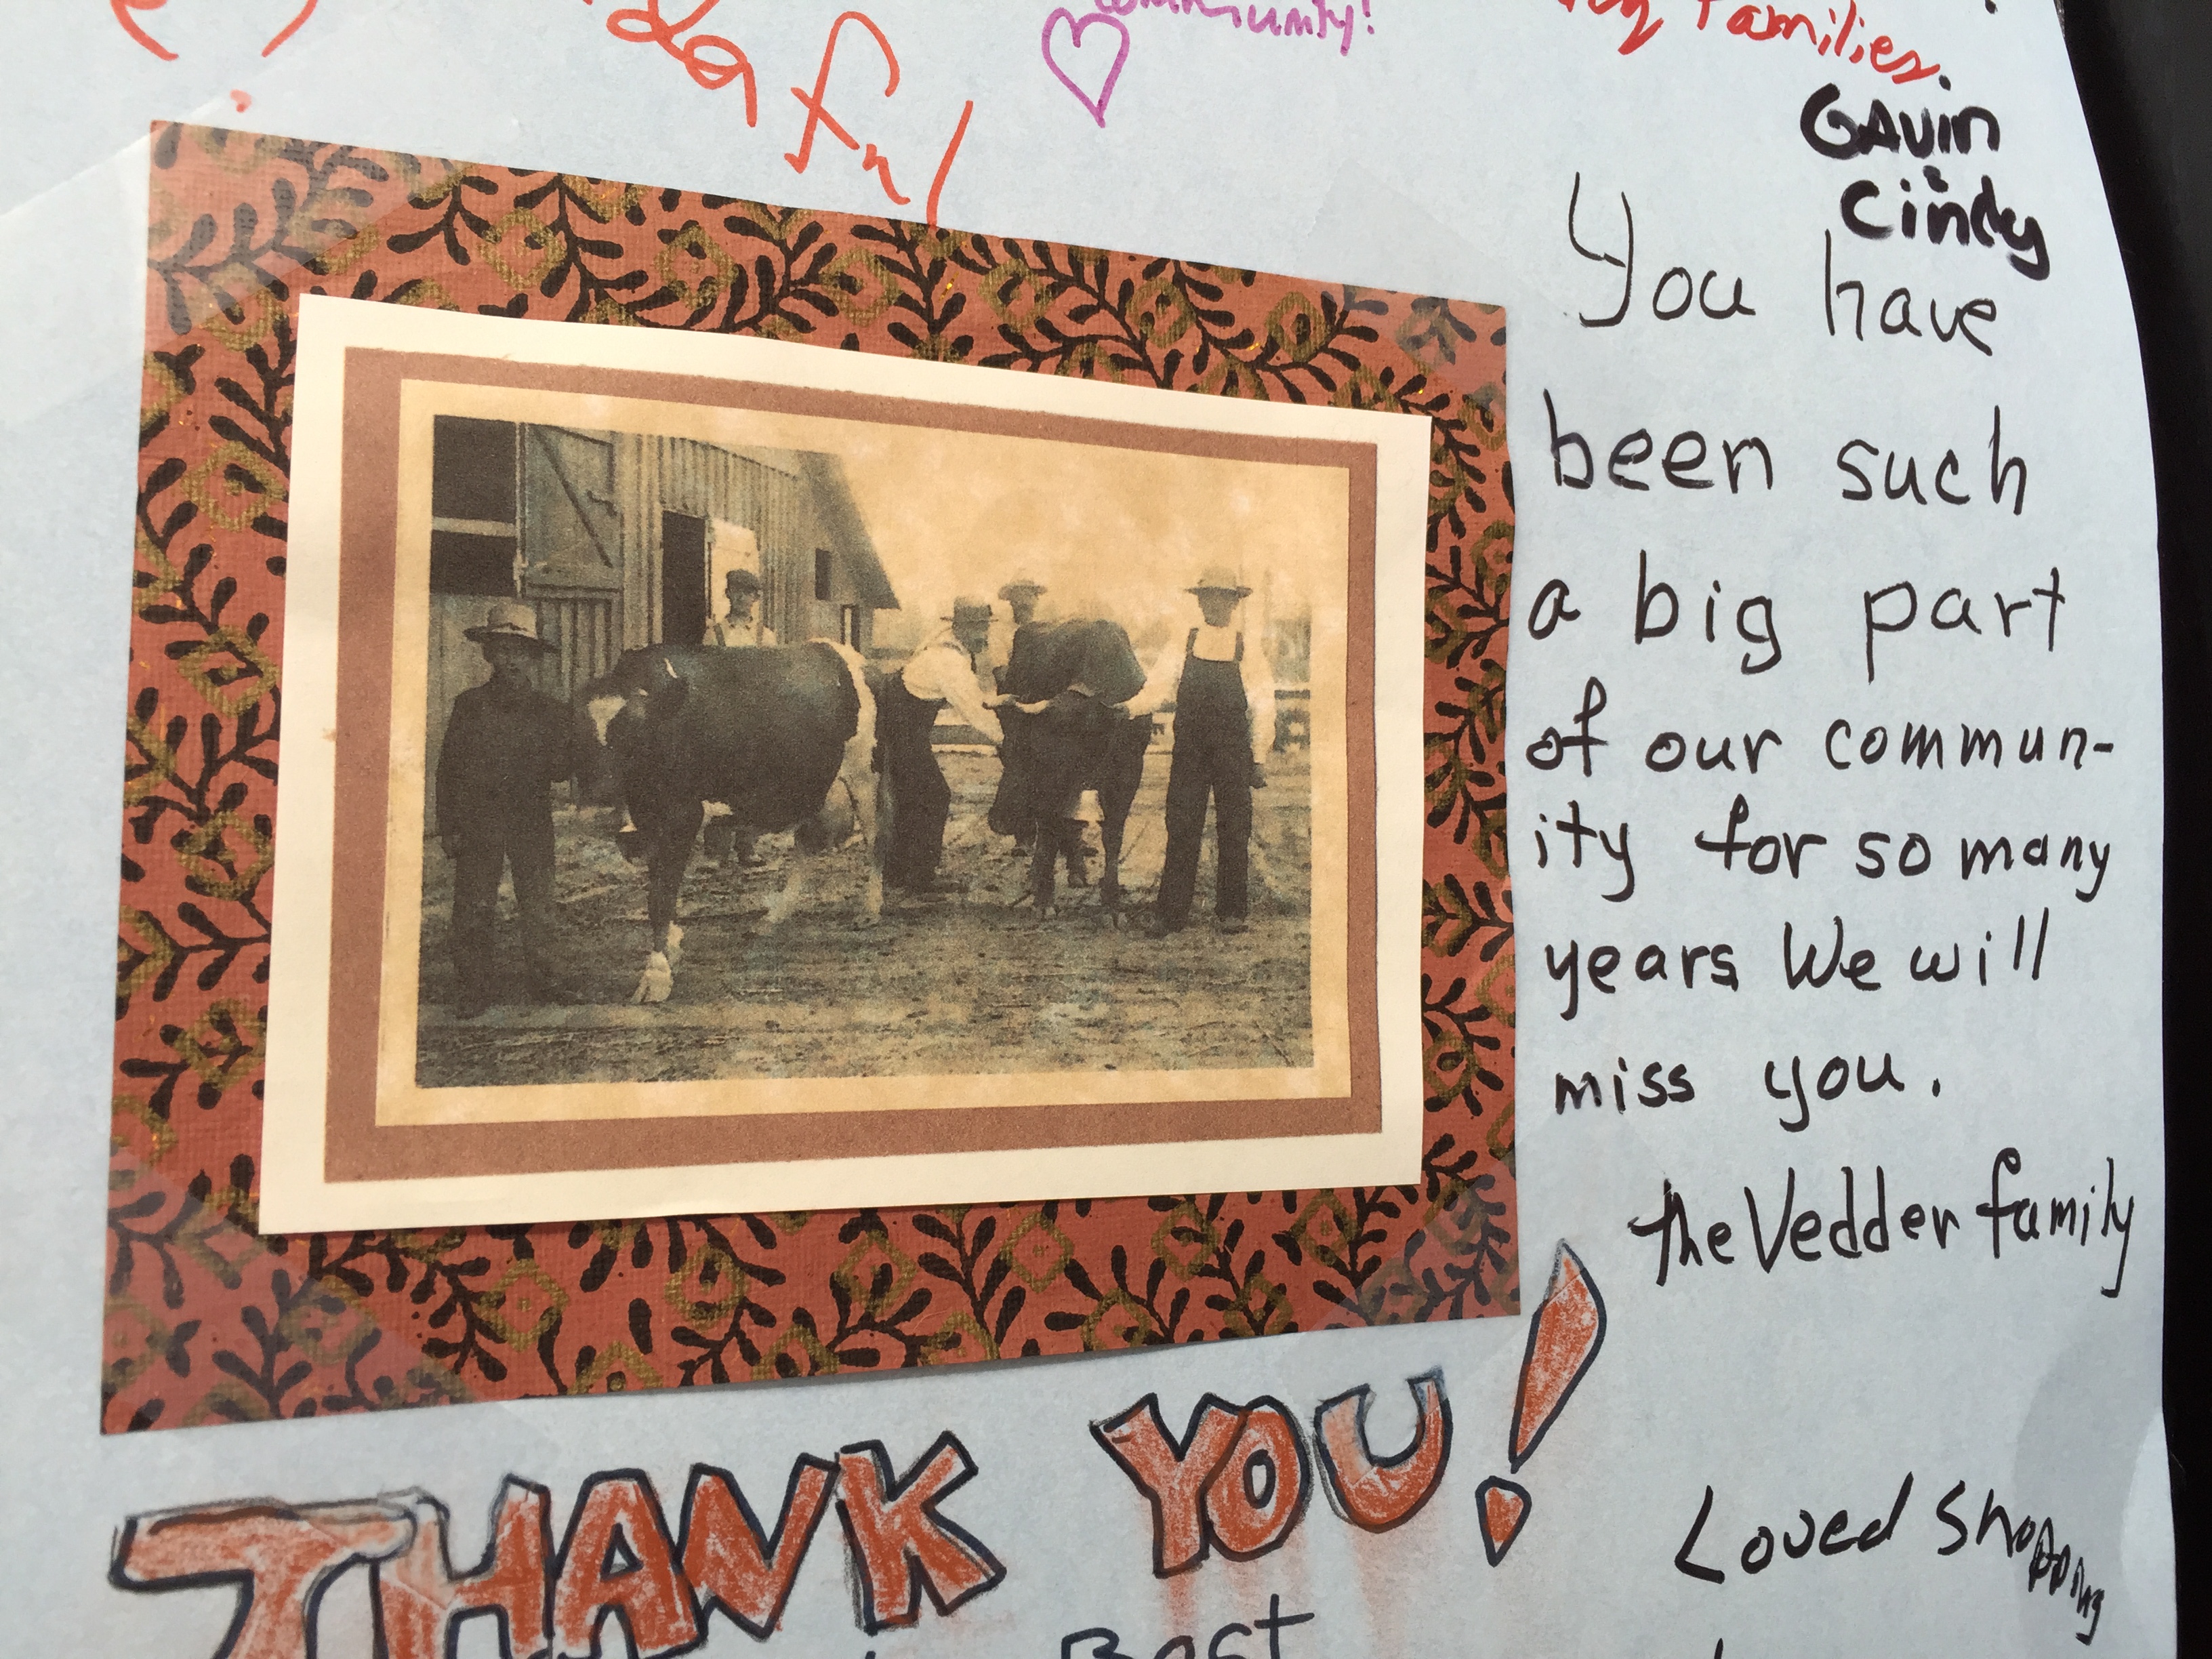 community!
families.
Gavin
Cindy
You have
been such
a big part
of our commun-
ity for so many
years We will
miss you.
the Vedder family
THANK YOU!
Loved Shopping
Best